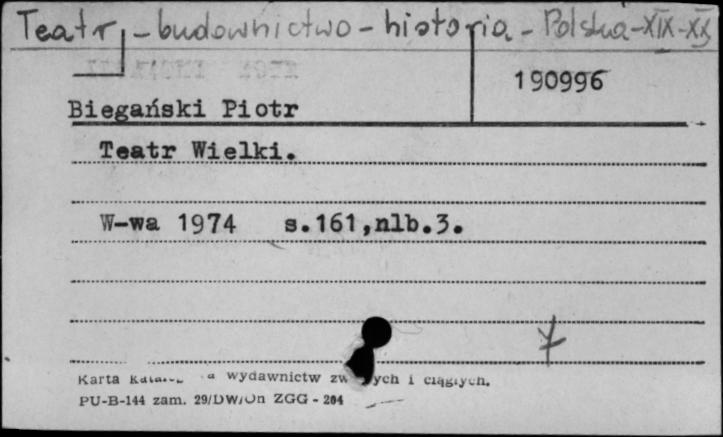 Teatr - budownictwo - historia - Polska - XIX - XX
190996
Biegański Piotr
Teatr Wielki.
W-wa 1974 s.161,nlb.3.
Karta wydawnictw i ciągłych.
PU-B-144 zam. 29/DW/On ZGG - 204